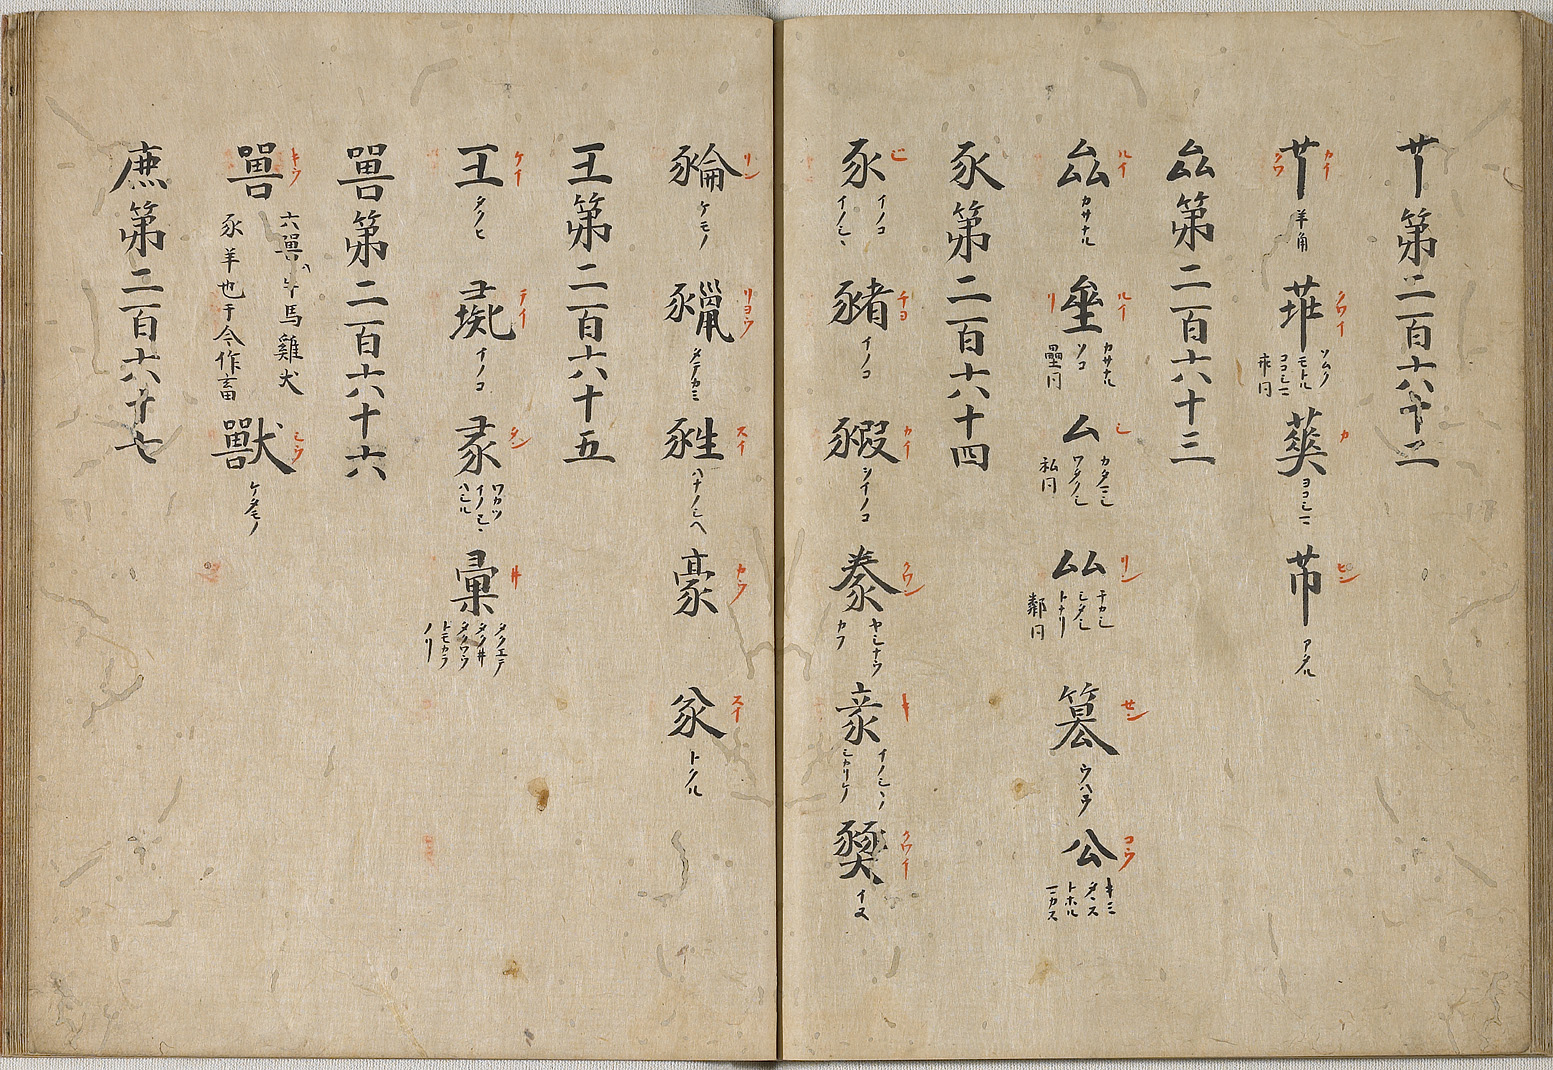 𦫳第二百六十二
𦫳 カイ クワ 羊角 クワイ ソムク モトル ヨコシマ 乖同 カ ヨコシマ 芇 ヒン アタル
厽第二百六十三
厽 ルイ カサナル 垒 ルイ リ カサナル ツコ 壘同 厶 シ カタマシ ワタクシ 私同 厸 リン チカシ シタシ トナリ 鄰同 篡 サン ウハフ 公 コウ キミ タヽス トホル マカス
豕第二百六十四
豕 シ イノコ イノシヽ 豬 チヨ イノコ 豭 カイ シイノコ 豢 クワン ヤシナウ カフ 豙 キ イノシヽノ シカリケ クワイ イヌ
リン ケモノ リヨウ メテカミ スイ ハナノシヘ 豪 カウ 㒸 スイ トクル
彑第二百六十五
彑 ケイ タクヒ 彘 テイ イノコ 彖 タン ワカツ イノシヽ ハシル 彙 井 タクエテ タクイ井 タクワウ トモカラ ノリ
嘼第二百六十六
嘼 キウ 六嘼ハ牛馬雞犬 豕羊也于今作畜 獸 シウ ケタモノ
廌第二百六十七